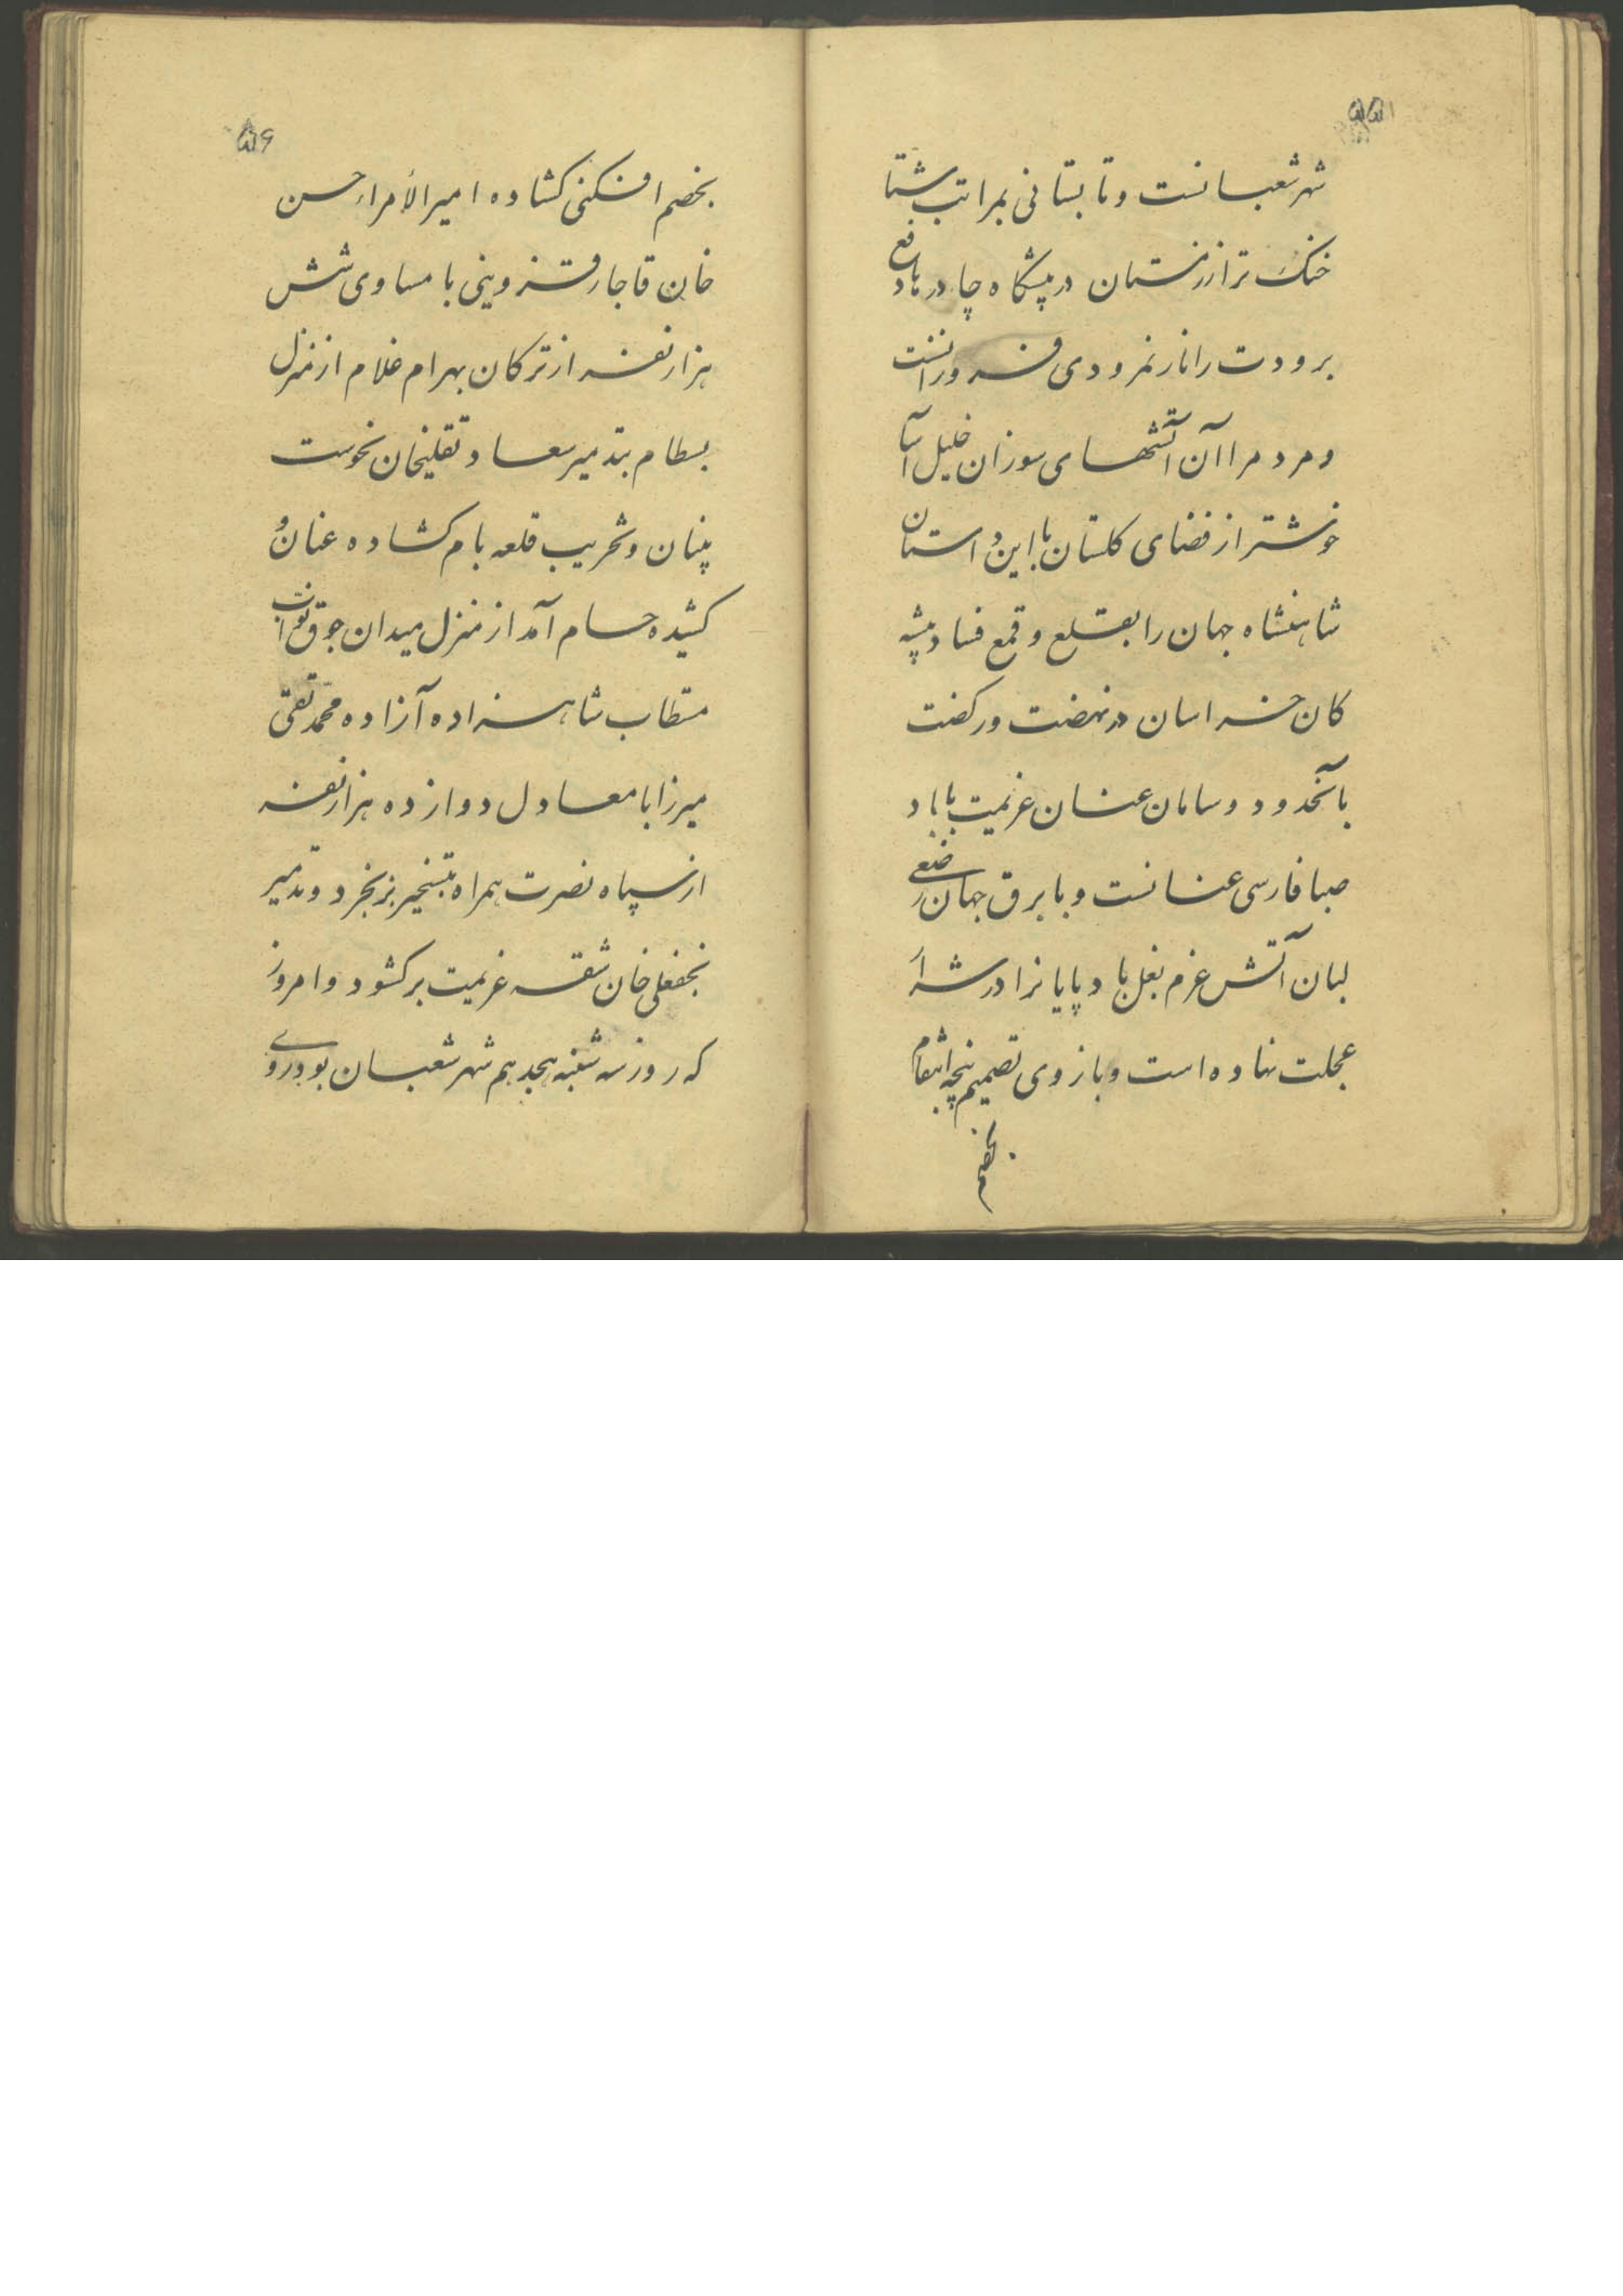 ۵۵
شهر شعبانست و تابستانی بمراتب شتا
خنک تر از زمستان در پیشگاه چادرها دفع
برودت را نار نمرودی فروزانست
و مردم را آن آتشهای سوزان خلیل آسا
خوشتر از فضای گلستان با این داستان
شاهنشاه جهان را بقلع و قمع فساد پیشه
کان خراسان در نهضت و رکضت
بآنحدود و سامان عنان عزیمت با باد
صبا فارسی عنانست و با برق جهان رضیعی
لبان آتش عزم بغل باد پایانرا در شراک
عجلت نهاده است و بازوی تصمیم پنجه انتقام
بخصم
۵۶
بخصم افکنی کشاده امیر الأمراء حسن
خان قاجار قزوینی با مساوی شش
هزار نفر از ترکان بهرام غلام از منزل
بسطام بتدمیر سعادتقلیخان نحوست
بنیان و تخریب قلعه بام کشاده عنان و
کشیده حسام آمد از منزل میدان جوق نواب
مستطاب شاهزاده آزاده محمد تقی
میرزا با معادل دوازده هزار نفر
از سپاه نصرت همراه بتسخیر بزنجرد و تدمیر
نجفعلی خان شقه عزیمت برکشود و امروز
که روز سه شنبه هیجدهم شهر شعبان بود اردوی